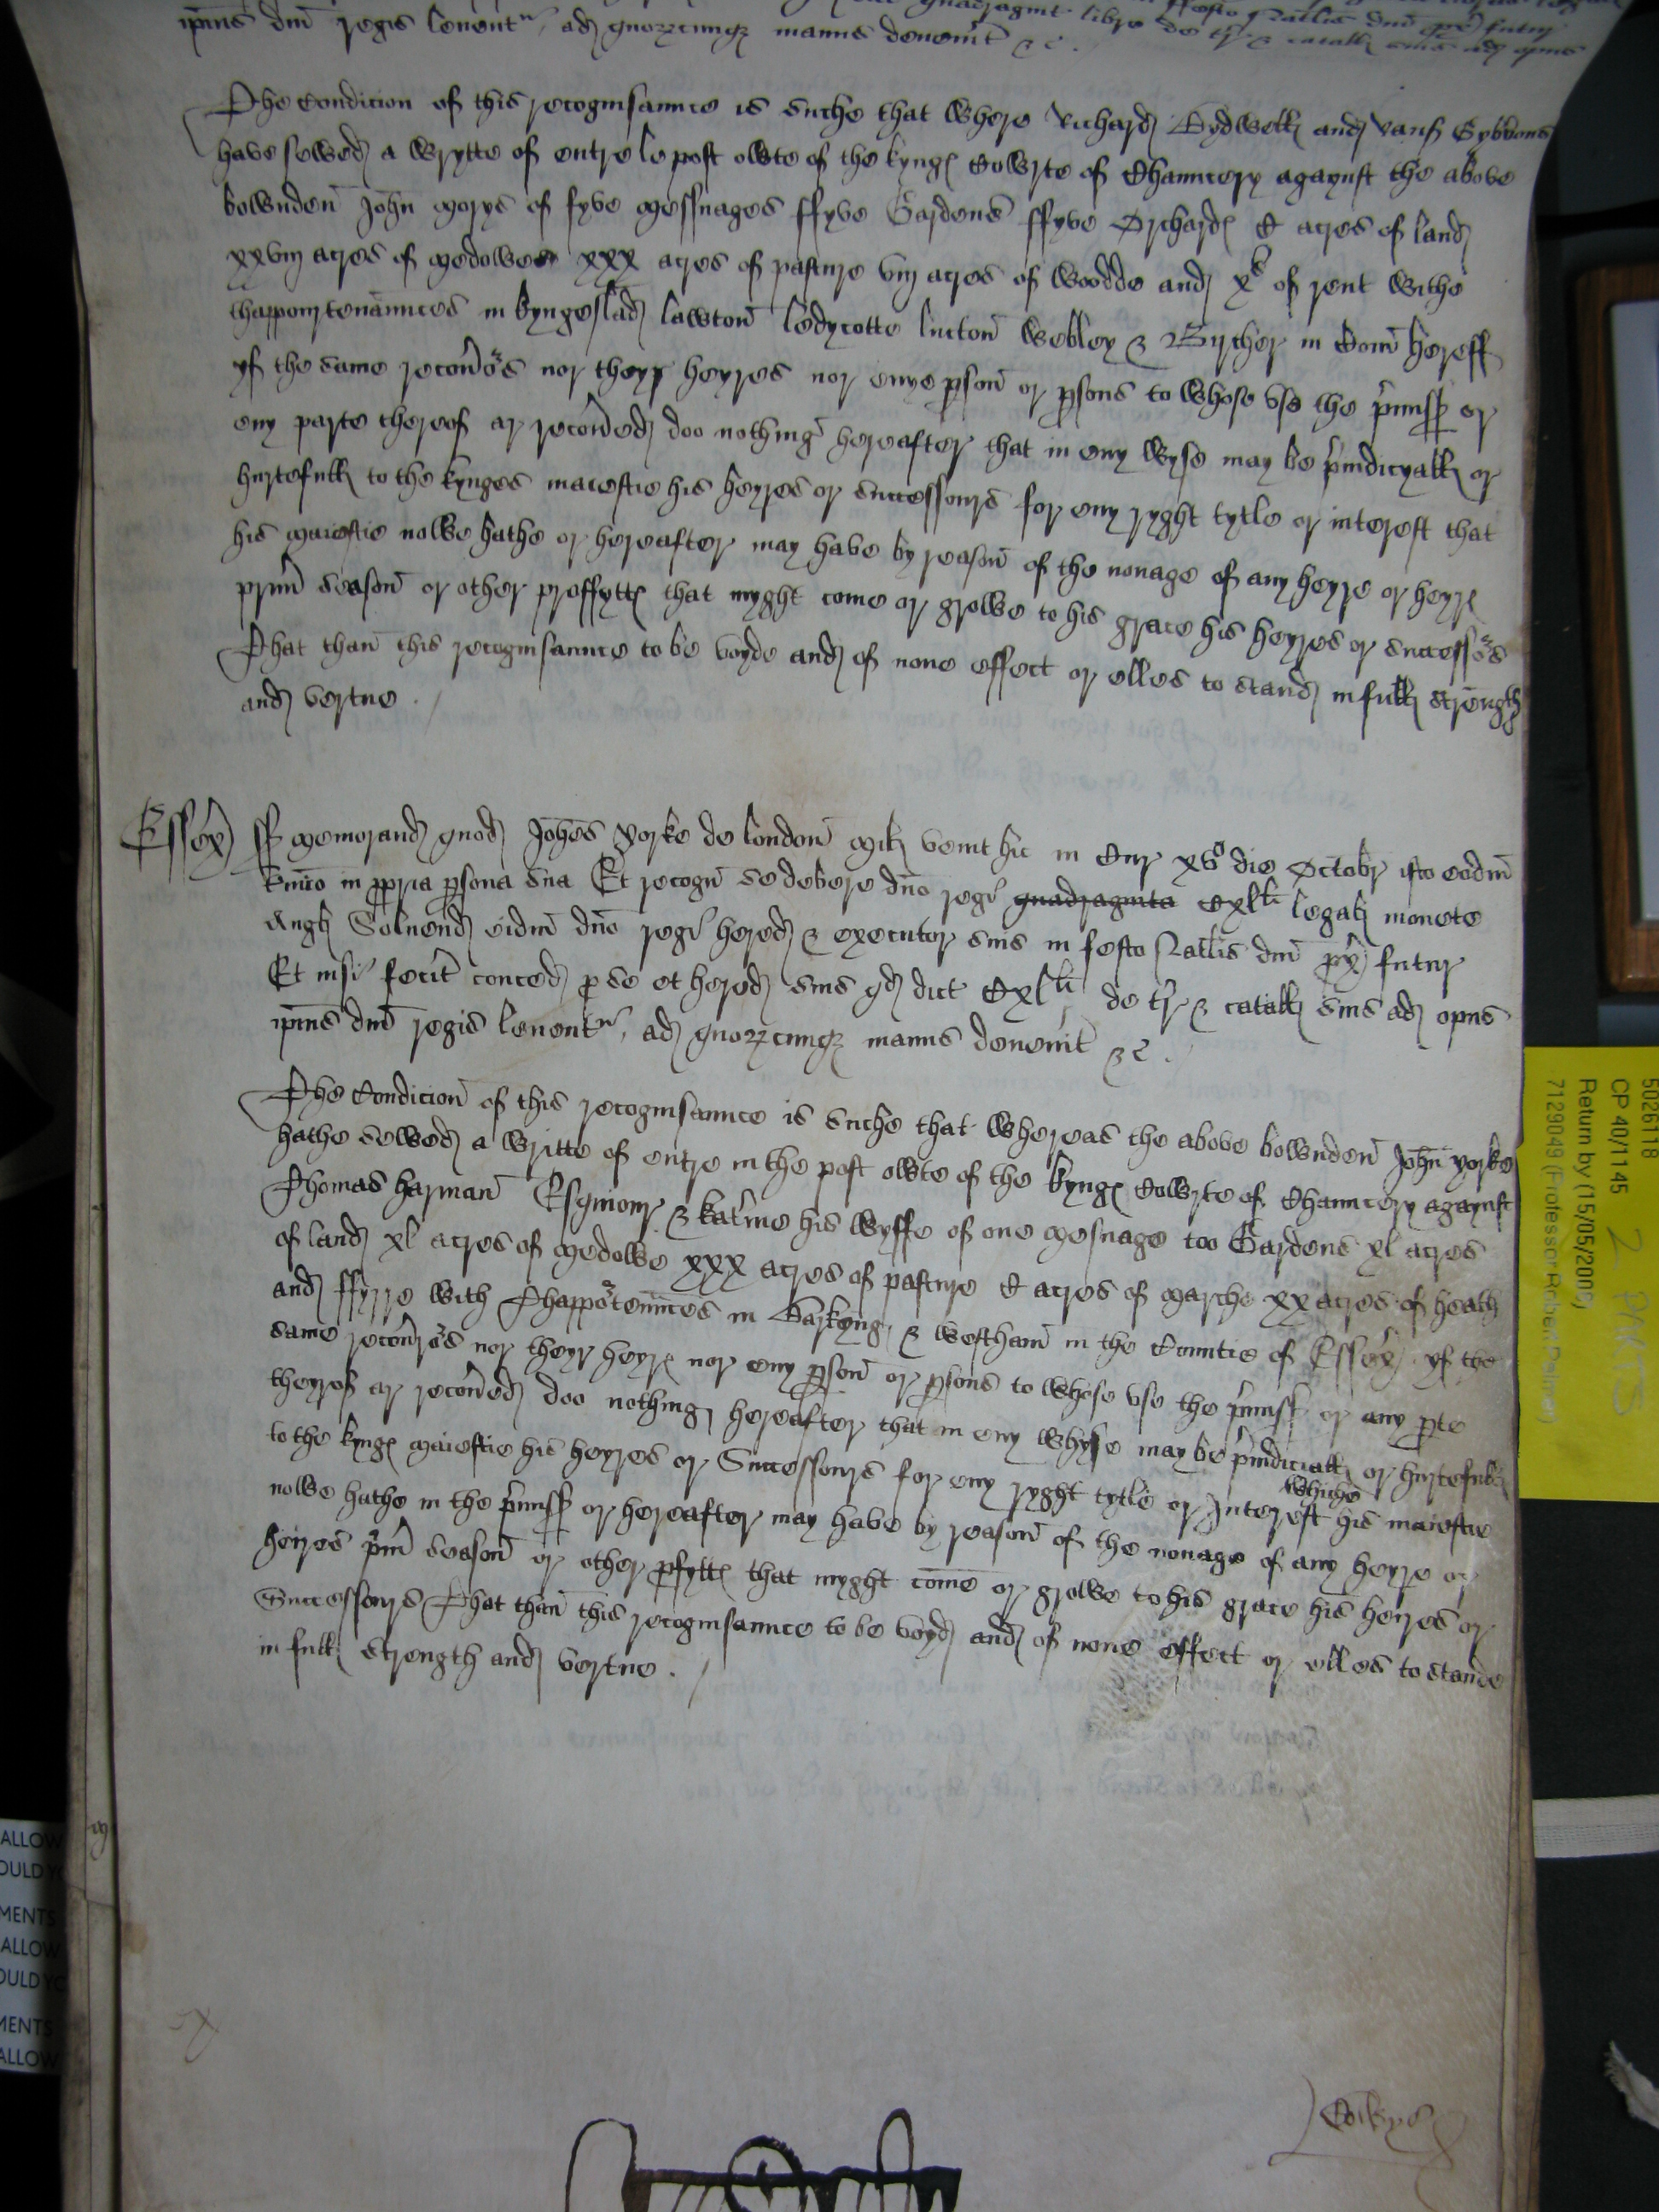 quadragint libre de terr & catall suis ad opus
ip̄ius dn̄i regis levent ad quorzcumq manus devenit &c.
The Condicion of this recognisaunce is suche that where Richard Bydwell and Gybbons
have sewed a wrytte of entre le post owte of the kyngs Cowrte of Chauncery agaynst the above
bowndeñ Joh̄n Morys of fyve messuages ffyve Gardens ffyve Orchards C acres of land
xxviij acres of medowe xxx acres of pasture viij acres of woodde and xs of rent withe
thapportenaunces in kyngeslād lawtoñ ledycotte luctoñ Webley & Bircher in Com̄ hereff
yf the same recov̄ors nor theyr heyres nor enye psoñ or psons to whose vse the p̄miss or
eny parte thereof ar recov̄ed doo nothing hereafter that in eny wyse may be p̄iudicyall or
hurtefull to the kynges maiestie his heyres or successours for eny ryght tytle or interest that
his maiestie nowe hathe or hereafter may have by reasoñ of the nonage of any heyre or heyrs
prim̄ seasoñ or other proffytts that myght come or growe to his grace his heyres or successors
That thañ this recognisaunce to be voyde and of none effect or elles to stand in full strength
and vertue ./
Essex ss Memorand quod Joh̄es Yorke de londoñ mil venit hic in Cur xvo die Octobr isto eodm̄
t̄mio in ppria psona sua Et recogn se debere dn̄o regi quadraginta Cxl li legal monete
Angl Solvend eidm̄ dn̄o regi hered & executor suis in festo Nat̄lis dn̄i px futur
Et nisi fecit conced p se et hered suis qd dict Cxl li de terr & catall suis ad opus
ip̄ius dn̄i regis levent ad quorzcumq manus devenit &c.
The Condicioñ of this recognisaunce is suche that whereas the above bowndeñ Joh̄n yorke
hathe sewed a writte of entre in the post owte of the kyngs Cowrte of Chauncery agaynst
Thomas harmañ Esquiour & kat̄ine his wyffe of one mesuage too Gardens xl acres
of land xl acres of medowe xxx acres of pasture C acres of marche xx acres of heath
and ffyrre with Thapportenn̄ces in Barkyng & westham̄ in the Countie of Essex yf the
same recov̄rors nor theyr heyrs nor eny psoñ or psons to whose vse the p̄miss or any pte
theyrof ar recov̄ed doo nothing hereafter that in eny whyse may be p̄iudiciall or hurtefull
to the kyngs maiestie his heyres or Successours for eny ryght tytle or Interest whiche his maiestie
nowe hathe in the p̄miss or hereafter may have by reasoñ of the nonage of any heyre or
heires p̄m seasoñ or other pfytts that myght come or growe to his grace his heires or
Successours That thañ this recognisaunce to be voyd and of none effect or elles to stande
in full strength and vertue ./
5026118
CP 40/1145 2 PARTS
Return by (15/05/2009)
7129049 (Professor Robert Palmer)
ALLOW
OULD YO
MENTS
ALLOW
OULD YO
MENTS
ALLOW